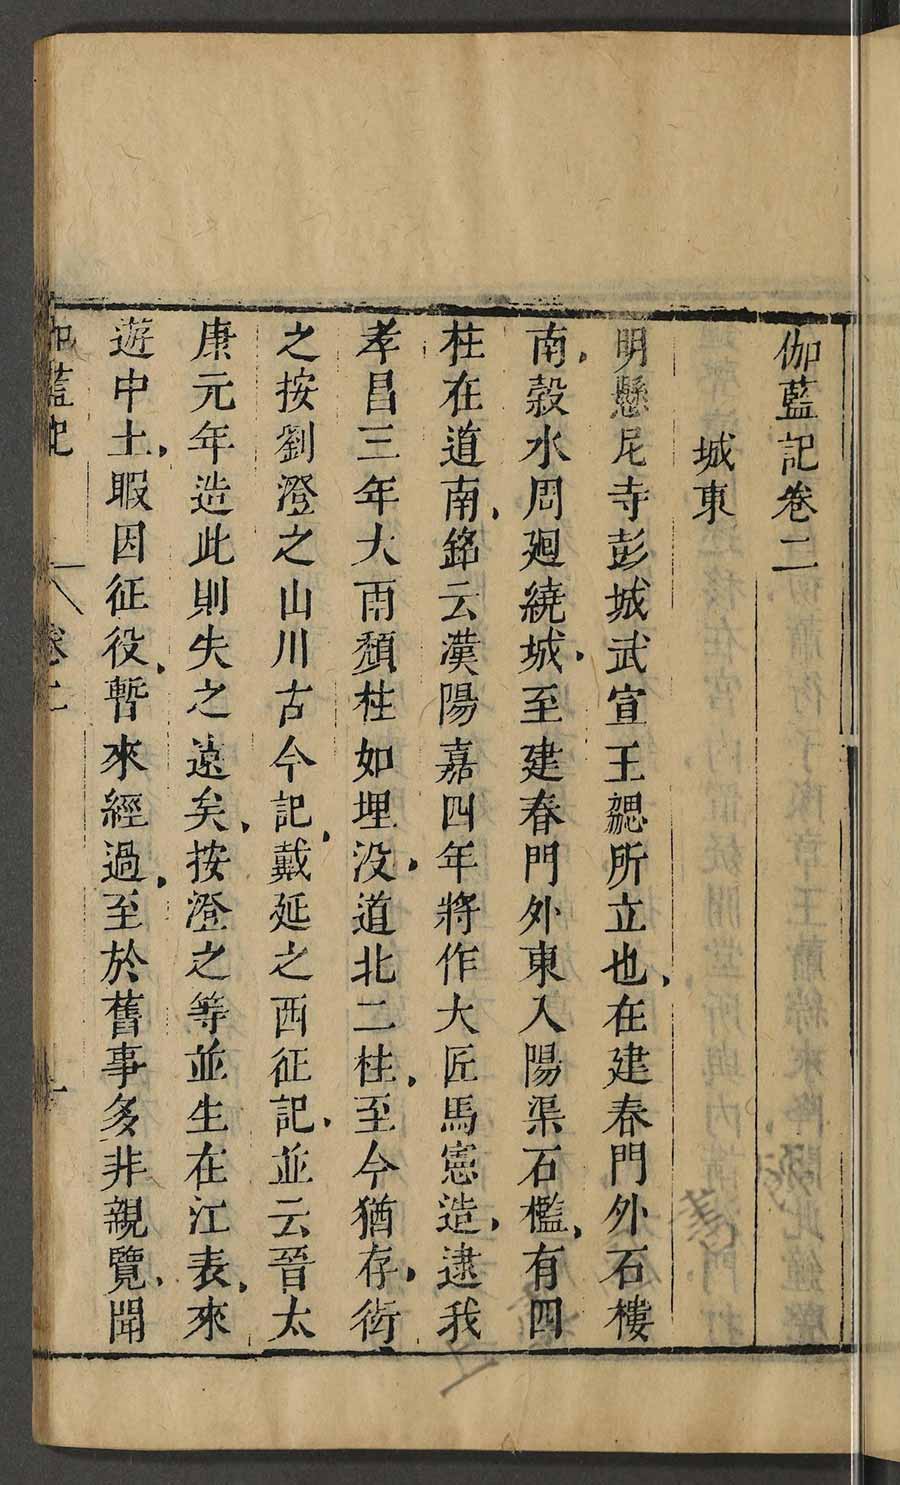 伽藍記卷二
城東
明懸尼寺彭城武宣王勰所立也、在建春門外石樓
南、穀水周迴繞城、至建春門外東入陽渠石檻、有四
柱在道南、銘云漢陽嘉四年將作大匠馬憲造、逮我
孝昌三年大雨頹柱如埋没、道北二柱、至今猶存、衒
之按劉澄之山川古今記、戴延之西征記、並云晉太
康元年造此則失之遠矣、按澄之等並生在江表、來
遊中土、暇因征役、暫來經過、至於舊事多非親覽、聞
伽藍記 卷二